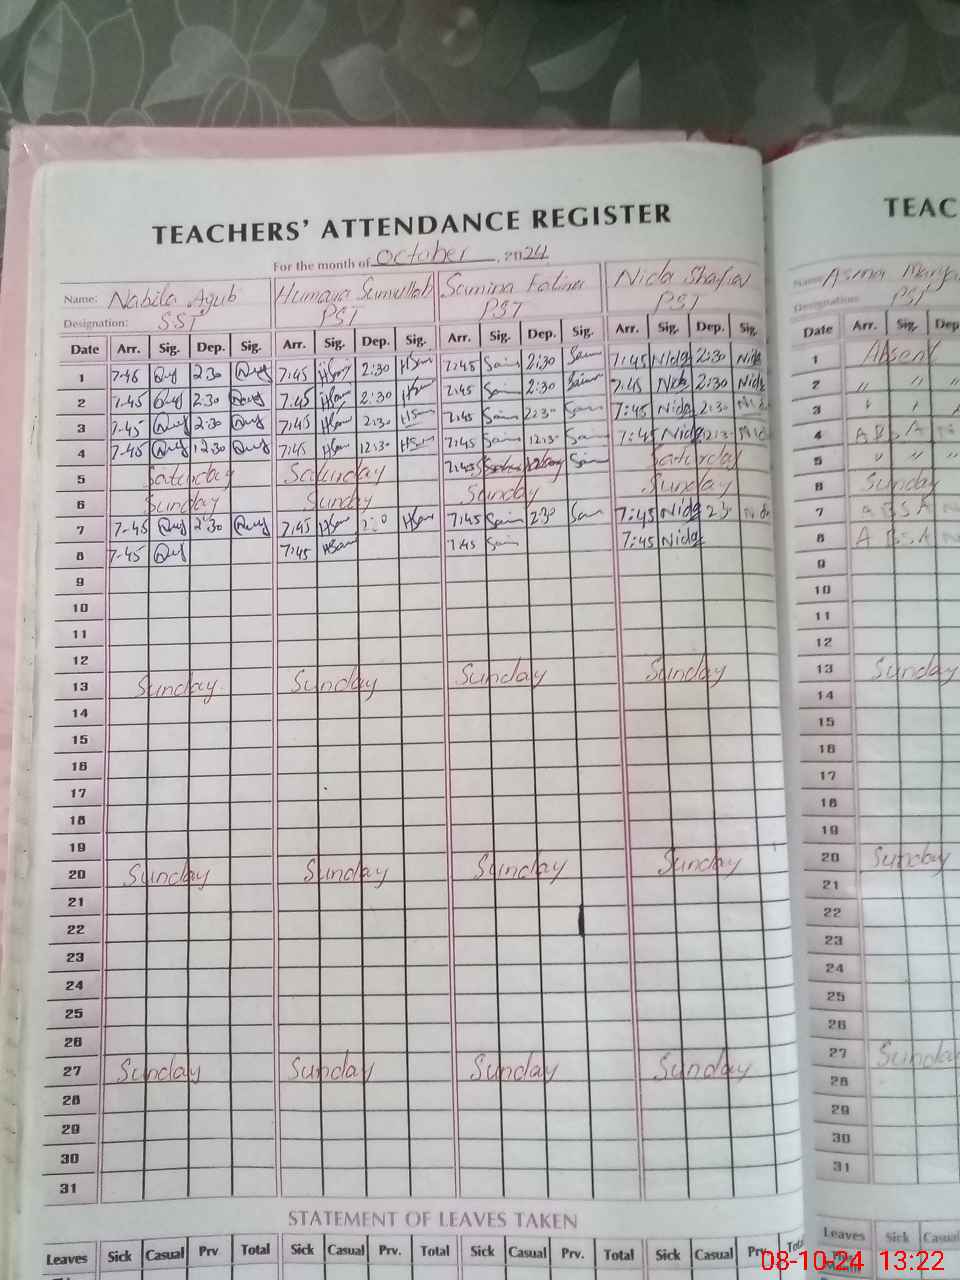 TEACHERS' ATTENDANCE REGISTER
TEAC
For the month of October, 2024
Name: Nabila Ayub Humaya Samina Nida
Name: Asma
Designation: SST PST PST PST
Designation: PST
Date Arr. Sig. Dep. Sig. Arr. Sig. Dep. Sig. Arr. Sig. Dep. Sig. Arr. Sig. Dep. Sig.
Date Arr. Sig. Dep
1 7-45 2:30 7:45 2:30 7:45 2:30 7:45 Nida 2:30 Nida
1 Absent
2 7-45 2:30 7:45 2:30 7:45 2:30 7:45 Nida 2:30 Nida
2 " " "
3 7-45 2:30 7:45 2:30 7:45 2:30 7:45 Nida 2:30 Nida
3
4 7-45 12:30 7:45 12:30 7:45 12:30 7:45 Nida 12:30 Nida
4 A B S A
5 Saturday Saturday 7:45 Saturday
5 " " "
6 Sunday Sunday Sunday Sunday
6 Sunday
7 7-45 2:30 7:45 7:45 2:30 7:45 Nida
7 A B S A
8 7-45 7:45 7:45 7:45 Nida
8 A B S A
9
9
10
10
11
11
12
12
13 Sunday Sunday Sunday Sunday
13 Sunday
14
14
15
15
16
16
17
17
18
18
19
19
20 Sunday Sunday Sunday Sunday
20 Sunday
21
21
22
22
23
23
24
24
25
25
26
26
27 Sunday Sunday Sunday Sunday
27 Sunday
28
28
29
29
30
30
31
31
STATEMENT OF LEAVES TAKEN
Leaves Sick Casual Prv. Total Sick Casual Prv. Total Sick Casual Prv. Total Sick Casual Prv. Total
Leaves Sick Casual
08-10-24 13:22